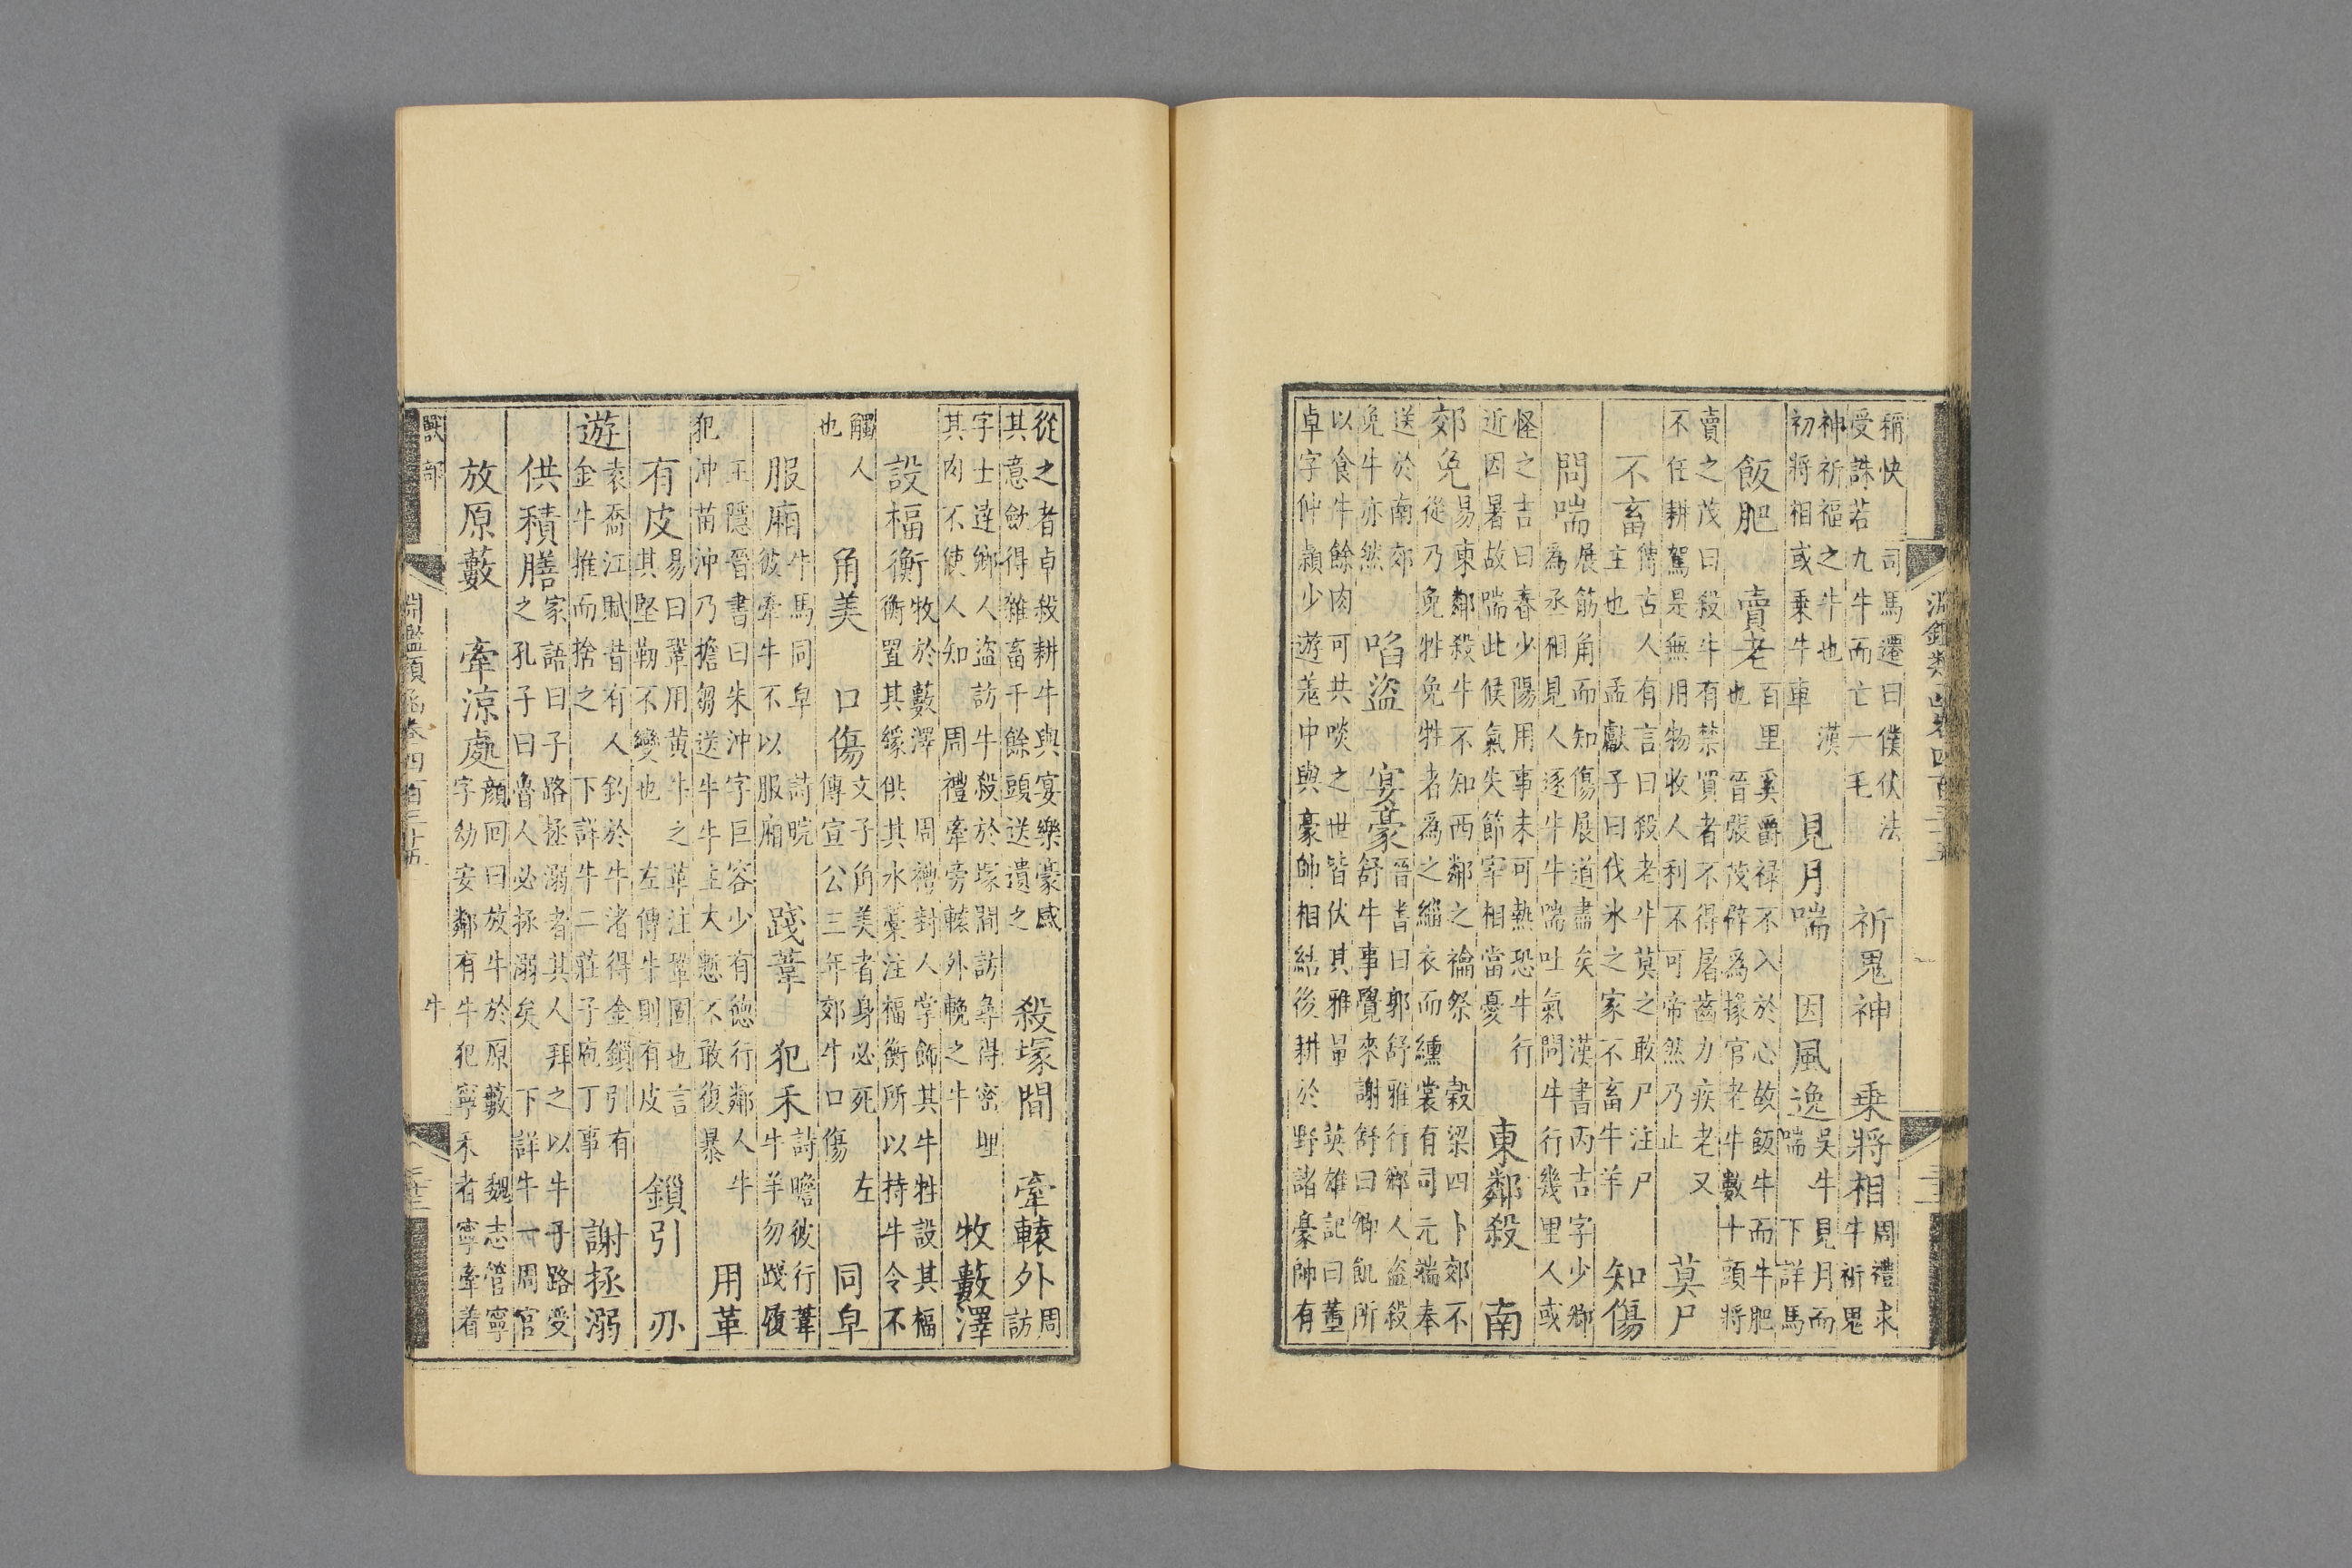 淵鑑類函卷四百三十五
稱快 司馬遷曰僕伏法
受誅若九牛而亡一毛
祈鬼神 乘將相
周禮求
牛祈鬼
神祈福之牛也 漢
初將相或乘牛車
見月喘 因風逸
吳牛見月而
喘 下詳馬
飯肥 賣老
百里奚爵祿不入於心故飯牛而牛肥
也 晉張茂辟為掾官老牛數十頭將
賣之茂曰殺牛有禁買者不得屠齒力疾老又
不任耕駕是無用物收人利不可帝然乃止
莫尸
不畜
傳古人有言曰殺老牛莫之敢尸注尸
主也 孟獻子曰伐氷之家不畜牛羊
知傷
問喘
展筋角而知傷展道盡矣 漢書丙吉字少卿
為丞相見人逐牛牛喘吐氣問牛行幾里人或
怪之吉曰春少陽用事未可熱恐牛行
近因暑故喘此候氣失節宰相當憂
東鄰殺 南
郊免
易東鄰殺牛不知西鄰之禴祭 榖梁四卜郊不
從乃免牲免牲者為之緇衣而纁裳有司元端奉
送於南郊
免牛亦然
啗盜 宴豪
晉書曰郭舒雅行鄉人盜殺
舒牛事覺來謝舒曰卿飢所
以食牛餘肉可共啖之世皆伏其雅量 英雄記曰董
卓字仲潁少遊羌中與豪帥相結後耕於野諸豪帥有
從之者卓殺耕牛與宴樂豪感
其意斂得雜畜千餘頭送遺之
殺塚間 牽轅外
周
訪
字士達鄉人盜訪牛殺於塚間訪尋得密埋
其肉不使人知 周禮牽旁轅外輓之牛
牧藪澤
設楅衡
牧於藪澤 周禮封人掌飾其牛牲設其楅
衡置其緣供其水藁注楅衡所以持牛令不
觸人
也
角美 口傷
文子角美者身必死 左
傳宣公三年郊牛口傷
同皁
服廂
牛馬同皁 詩睆
彼牽牛不以服廂
踐葦 犯禾
詩瞻彼行葦
牛羊勿踐履
王隱晉書曰朱沖字巨容少有德行鄰人牛
犯沖苗沖乃擔芻送牛牛主大慙不敢復暴
用革
有皮
易曰鞏用黃牛之革注鞏固也言
其堅韌不變也 左傳牛則有皮
鎖引 刃
遊
袁喬江賦昔有人釣於牛渚得金鎖引有
金牛推而捨之 下詳牛二莊子庖丁事
謝拯溺
供積膳
家語曰子路拯溺者其人拜之以牛子路受
之孔子曰魯人必拯溺矣 下詳牛一周官
放原藪 牽涼處
顏回曰放牛於原藪 魏志管寧
字幼安鄰有牛犯寧禾者寧牽着
獸部 淵鑑類函卷四百三十五 牛